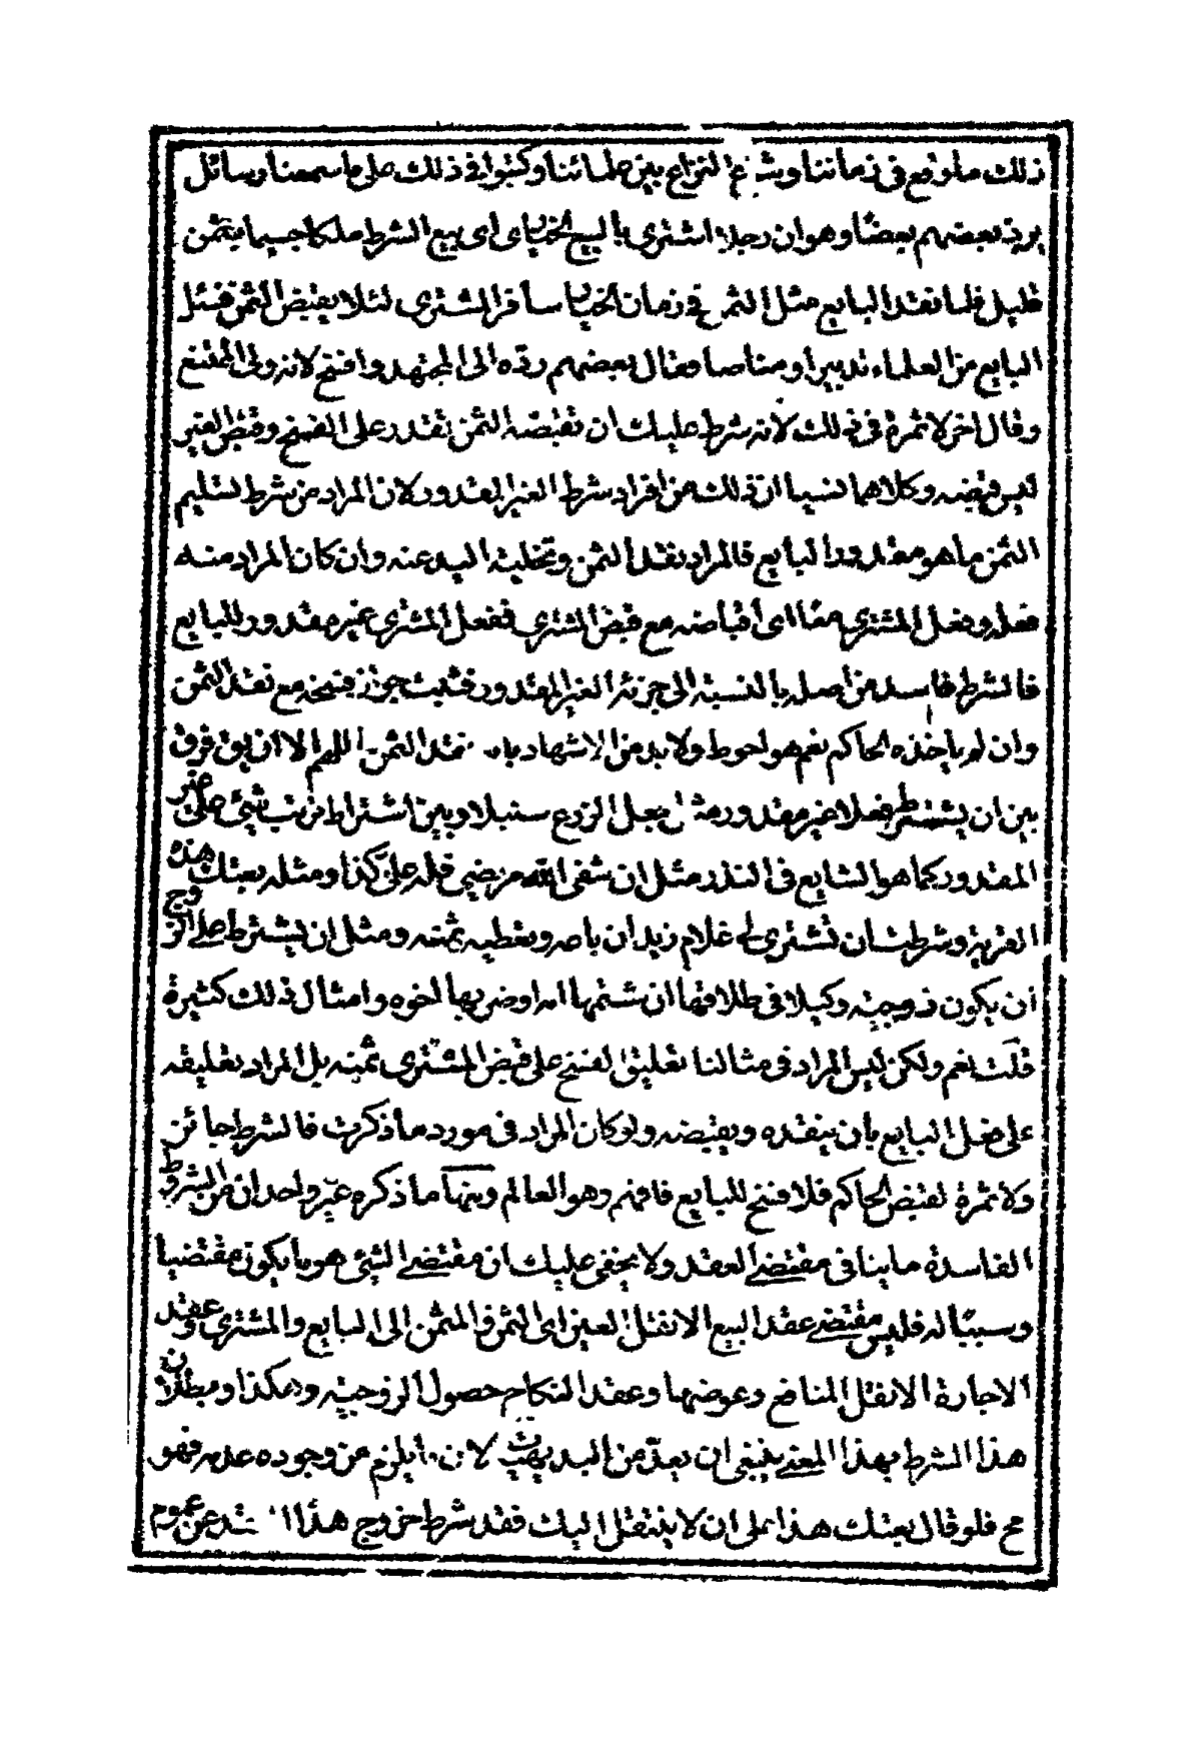 ذلك ما وقع فى زماننا وشاع النزاع بين علمائنا وكتبوا فى ذلك على ما سمعنا رسائل
يرد بعضهم بعضا وهو ان رجلا اشترى بالبيع الخيارى اى بيع الشرط ملكا جسيما بثمن
قليل فلما نقد البايع مثل الثمن فى زمان الخيار سافر المشترى لئلا يقبض الثمن فسئل
البايع من العلماء تدبيرا ومناصا فقال بعضهم ردّه الى المجتهد وافسخ لانه ولى الممتنع
وقال اخر لا ثمرة فى ذلك لانه شرط عليك ان تقبضه الثمن تقدر على الفسخ وقبض الغير
ليس قبضه وكلاهما نسيا ان ذلك من افراد شرط الغير المقدور لان المراد من شرط تسليم
الثمن ما هو مقدور البايع فالمراد نقد الثمن وتخلية اليد عنه وان كان المراد منه
فعله وفعل المشترى معا اى اقباضه مع قبض المشترى ففعل المشترى غير مقدور للبايع
فالشرط فاسد من اصله بالنسبة الى جزئه الغير المقدور فثبت جواز فسخه مع نقد الثمن
وان لم ياخذه الحاكم نعم هو احوط ولا بد من الاشهاد بانه نقد الثمن اللهم الا ان يق فرق
بين ان يشترط فعلا غير مقدور مثل جعل الزرع سنبلا وبين اشتراط ترتب شيئ على غير
المقدور كما هو الشايع فى النذر مثل ان شفى الله مريضى فلله علىّ كذا ومثله بعتك هذه
القرية وشرطت ان تشترى لى غلام زيد ان باعه ويعطيه بثمنه ومثل ان يشترط على الزوج
ان يكون زوجته وكيلا فى طلاقها ان شتمها امه او ضربها اخوه وامثال ذلك كثيرة
قلت نعم ولكن ليس المراد فى مثالنا تعليق الفسخ على قبض المشترى ثمنه بل المراد تعليقه
على فعل البايع بان ينقده ويقبضه ولو كان المراد فى مورد ما ذكرت فالشرط جائز
ولا ثمرة لقبض الحاكم فلا فسخ للبايع فافهم وهو العالم ومنها ما ذكره غير واحد ان من الشروط
الفاسدة ما ينافى مقتضى العقد ولا يخفى عليك ان مقتضى الشيئ هو ما يكون مقتضيا
وسببا له فليس مقتضى عقد البيع الا نقل العين اى الثمن والمثمن الى البايع والمشترى وعقد
الاجارة الا نقل المنافع وعوضها وعقد النكاح حصول الزوجية وهكذا وبطلان
هذا الشرط بهذا المعنى ينبغى ان يعدّ من البديهيات لانه يلزم من وجوده عدمه فهو
مح فلو قال بعتك هذا على ان لا ينتقل اليك فقد شرط خروج هذا العقد عن عموم